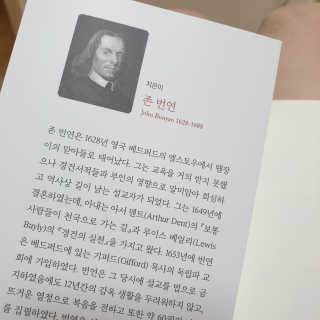 지은이
존 번연
John Bunyan 1628-1688
존 번연은 1628년 영국 베드퍼드의 엘스토우에서 땜장
이의 맏아들로 태어났다. 그는 교육을 거의 받지 못했
으나 경건서적들과 부인의 영향으로 말미암아 회심하
고 역사상 길이 남는 설교자가 되었다. 그는 1649년에
결혼하였는데, 아내는 아서 덴트(Arthur Dent)의 『보통
사람들이 천국으로 가는 길』과 루이스 베일리(Lewis
Bayly)의 『경건의 실천』을 가지고 왔다. 1653년에 번연
은 베드퍼드에 있는 기퍼드(Gifford) 목사의 독립파 교
회에 가입하였다. 번연은 그 당시에 설교를 법으로 금
지하였음에도 12년간의 감옥 생활을 두려워하지 않고,
뜨거운 열정으로 복음을 전하고 또한 약 60권의
를 집필하였다. 번연은